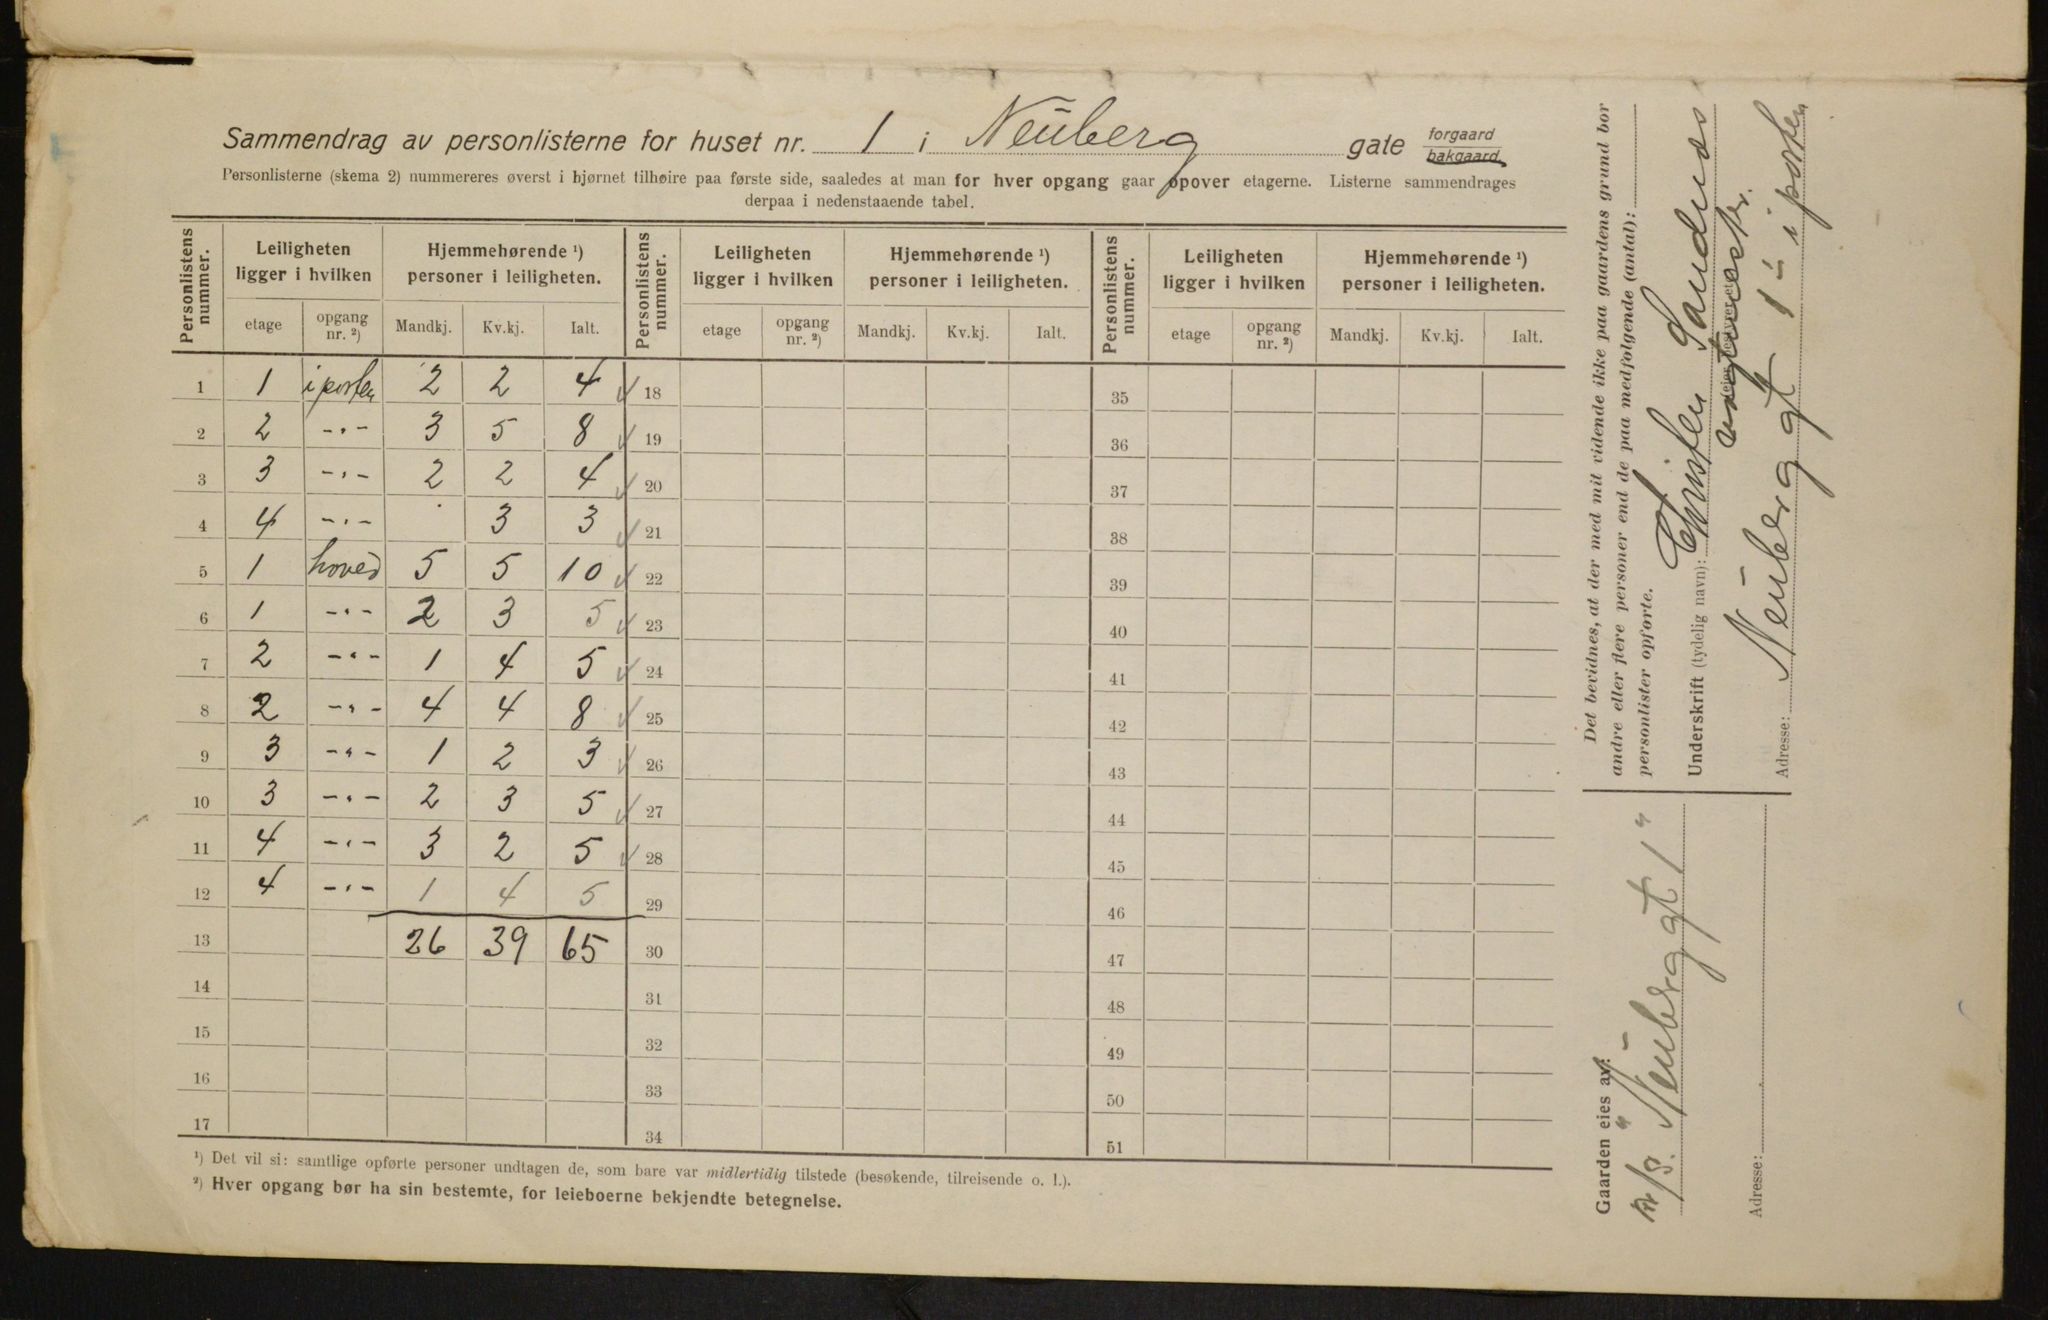 Sammendrag av personlisterne for huset nr. 1 i Neüberg gate forgaard bakgaard
Personlisterne (skema 2) nummereres øverst i hjørnet tilhøire paa første side, saaledes at man for hver opgang gaar opover etagerne. Listerne sammendrages
derpaa i nedenstaaende tabel.
Personlistens nummer. Leiligheten ligger i hvilken Hjemmehørende ¹) personer i leiligheten. Personlistens nummer. Leiligheten ligger i hvilken Hjemmehørende ¹) personer i leiligheten. Personlistens nummer. Leiligheten ligger i hvilken Hjemmehørende ¹) personer i leiligheten.
etage opgang nr. ²) Mandkj. Kv.kj. Ialt. etage opgang nr. ²) Mandkj. Kv.kj. Ialt. etage opgang nr. ²) Mandkj. Kv.kj. Ialt.
1 1 i porten 2 2 4 √ 18 35
2 2 -"- 3 5 8 √ 19 36
3 3 -"- 2 2 4 √ 20 37
4 4 -"- 3 3 √ 21 38
5 1 hoved 5 5 10 √ 22 39
6 1 -"- 2 3 5 √ 23 40
7 2 -"- 1 4 5 √ 24 41
8 2 -"- 4 4 8 √ 25 42
9 3 -"- 1 2 3 √ 26 43
10 3 -"- 2 3 5 √ 27 44
11 4 -"- 3 2 5 √ 28 45
12 4 -"- 1 4 5 29 46
13 26 39 65 30 47
14 31 48
15 32 49
16 33 50
17 34 51
¹) Det vil si: samtlige opførte personer undtagen de, som bare var midlertidig tilstede (besøkende, tilreisende o. l.).
²) Hver opgang bør ha sin bestemte, for leieboerne bekjendte betegnelse.
Det bevidnes, at der med mit vidende ikke paa gaardens grund bor
andre eller flere personer end de paa medfølgende (antal):
personlister opførte.
Underskrift (tydelig navn): Christen Sandnes
vagtmester.
Adresse: Neüberg gt 1 - i porten
Gaarden eies av:
A/S. "Neüberg gt 1"
Adresse: